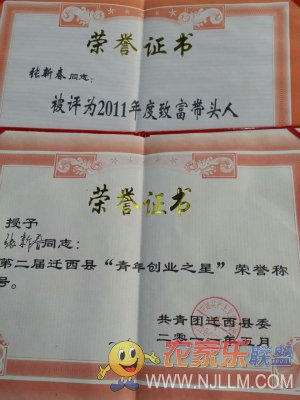 荣誉证书
张新春同志：
被评为2011年度致富带头人
荣誉证书
授予
张新春同志：
第二届迁西县“青年创业之星”荣誉称
号。
共青团迁西县委
二零一二年五月
农家乐联盟
WWW.NJLLM.COM